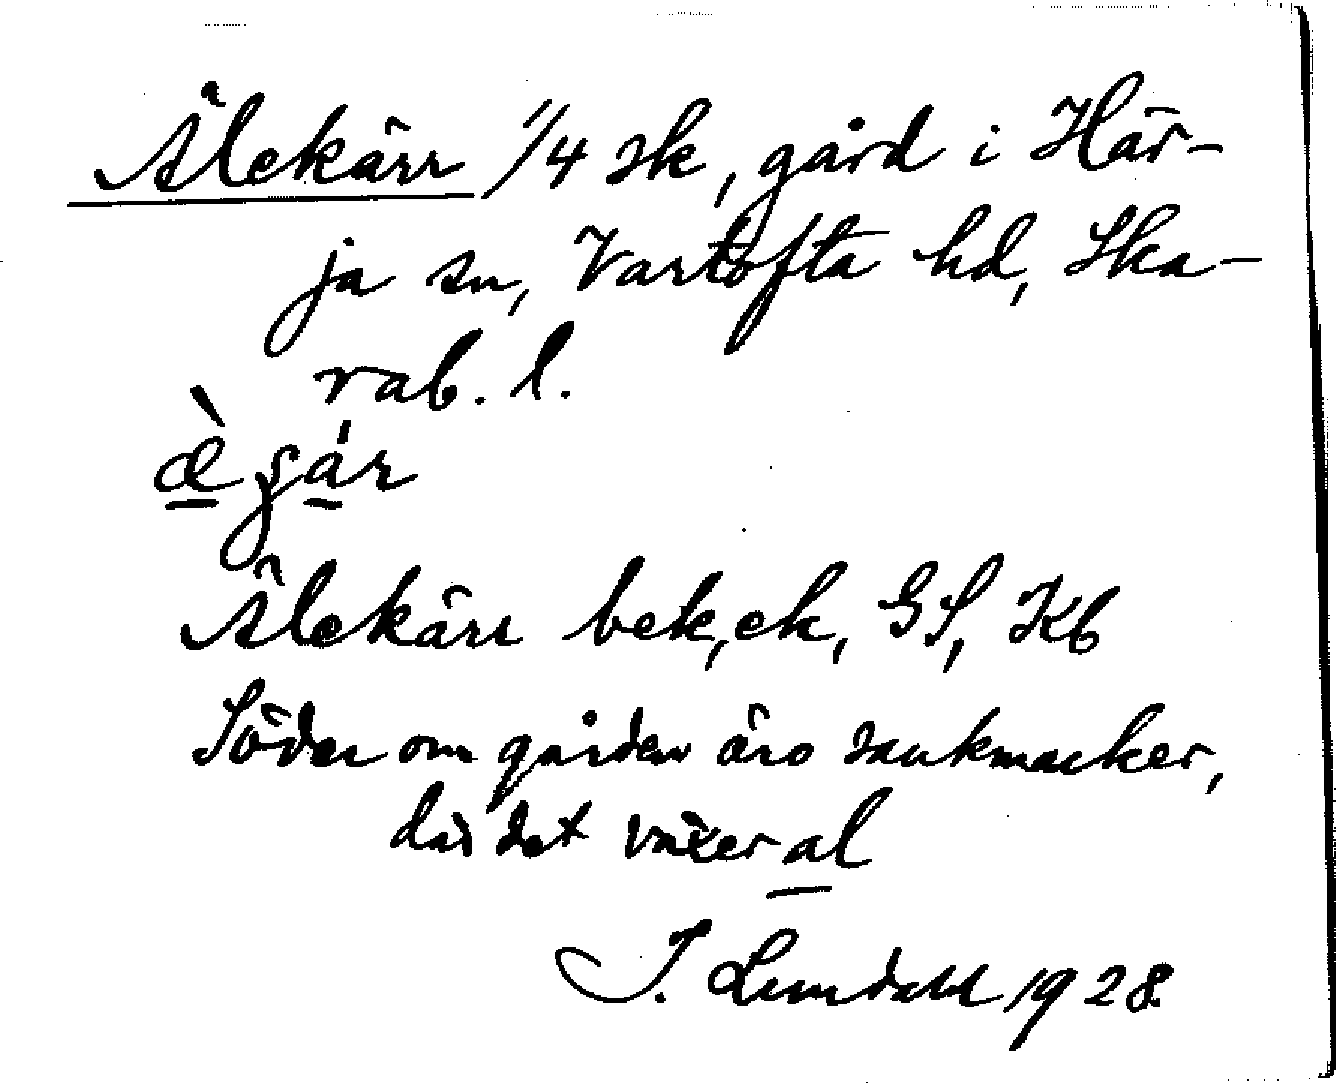 Älekärr 1/4 sk, gård i Här-
ja sn, Vartofta hd, Ska-
rab. l.
Älekärr bek, ek, GS, Kb
Söder om gården äro sankmarker,
där det växer al
I. Lundahl 1928.